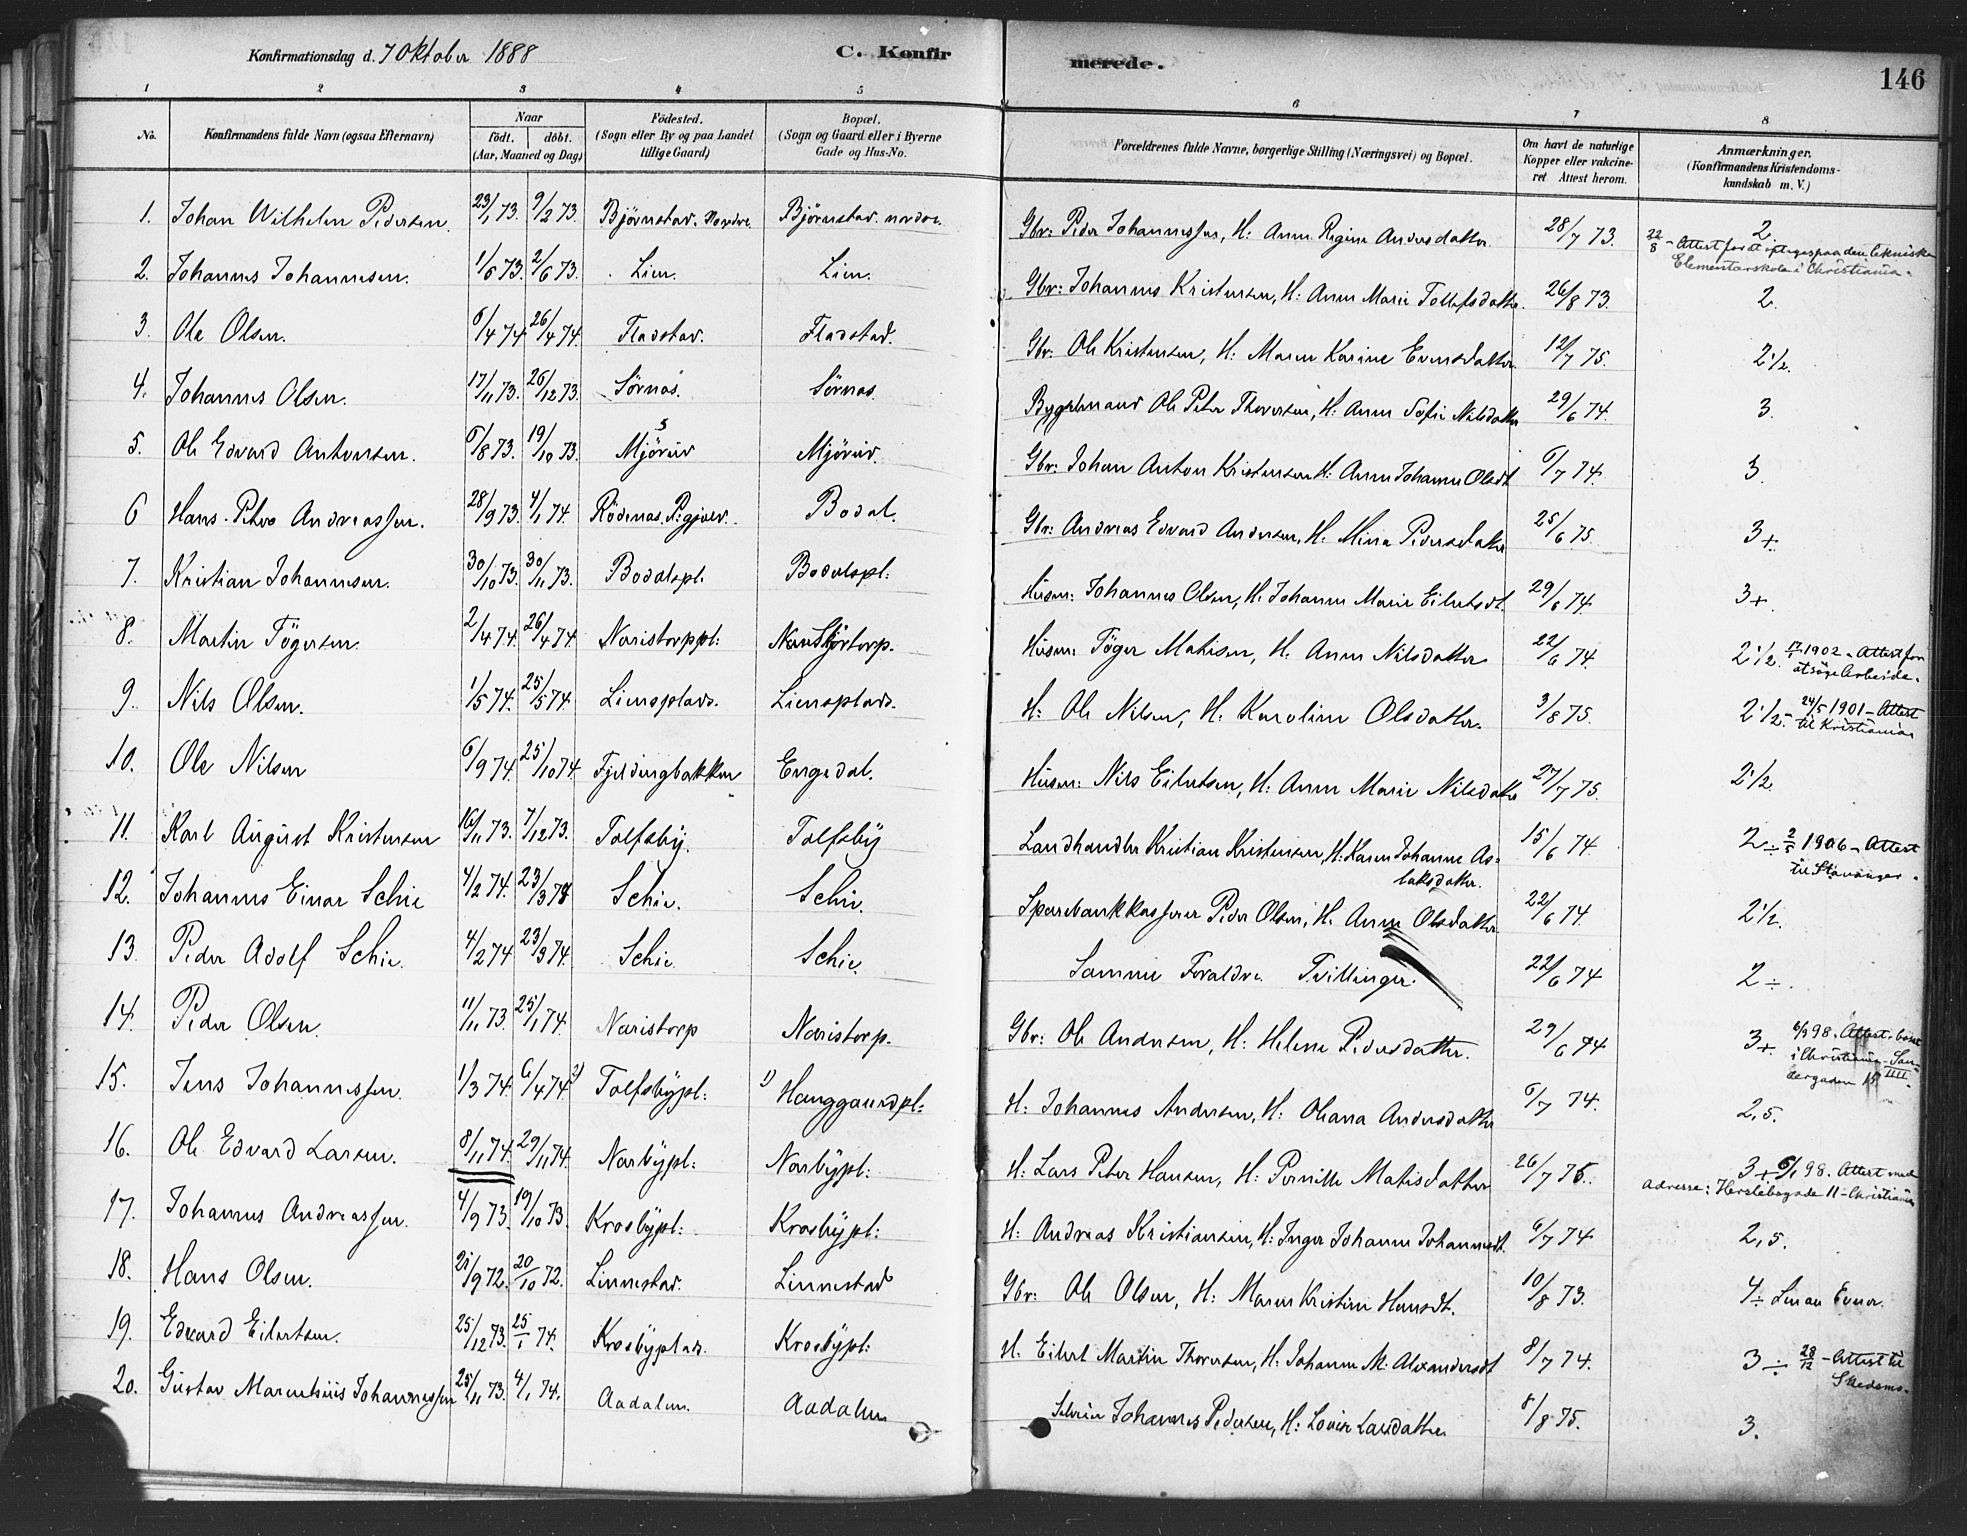 Konfirmationsdag d. 7 Oktober 1888 C. Konfirmerede. 146
1 2 3 4 5 6 7 8
No. Konfirmandens fulde Navn (ogsaa Efternavn) Naar født. døbt. (Aar, Maaned og Dag) Fødested. (Sogn eller By og paa Landet tillige Gaard) Bopæl. (Sogn og Gaard eller i Byerne Gade og Hus-No. Forældrenes fulde Navne, borgerlige Stilling (Næringsvei) og Bopæl. Om havt de naturlige Kopper eller vakcineret Attest herom. Anmærkninger. (Konfirmandens Kristendomskundskab m. V.)
1. Johan Wilhelm Pedersen. 23/1 73. 9/2 73. Bjørnstad. Nordre Bjørnstad. nordre Gbr: Peder Johannessen, H: Anne Regine Andersdatter 28/7 73. 2
22/8 - Attest for at optages paa den tekniske Elementærskole i Christiania.
2. Johannes Johannesen. 1/6 73. 2/6 73. Lien. Lien. Gbr: Johannes Kristensen, H: Anne Marie Tollefsdatter 26/8 73. 2.
3. Ole Olsen. 6/4 74 26/4 74. Fladstad. Fladstad. Gbr: Ole Kristensen, H: Maren Karine Evensdatter 12/7 75. 2 1/2.
4. Johannes Olsen. 17/11 73. 26/12 73. Sørnæs. Sørnæs Bygselmand Ole Peter Thoresen, H: Anne Sofie Nilsdatter 29/6 74. 3.
5. Ole Edvard Antonsen. 6/8 73. 19/10 73. Mjørud Mjørud. Gbr: Johan Anton Kristensen H: Anne Johanne Olsdt 6/7 74. 3.
6 Hans Peter Andreassen. 28/9 73. 4/1 74. Rødenæs. Bodal. Gbr: Andreas Edvard Andersen, H. Mina Pedersdatter 25/6 75. 3+
7. Kristian Johannesen. 30/10 73. 30/11 73. Bodalspl. Bodalspl: Husm: Johannes Olsen, H: Johanne Marie Eilertsdt. 29/6 74. 3+.
8. Martin Tøgersen. 2/4 74. 26/4 74. Næristorppl: Husm: Tøger Mathisen, H: Anne Nilsdatter 22/6 74. 2 1/2. 1902 - Attest for at søge Arbeide.
9. Nils Olsen. 1/5 74. 25/5 74. Liensplads. Liensplads. H: Ole Nilsen, H: Karoline Olsdatter. 3/8 75. 2 1/2. - 24/5 1901 - Attest til Kristiania
10. Ole Nilsen 6/9 74. 25/10 74. Fjeldingbakken Engedal. Husm: Nils Eilertsen, H: Anne Marie Nilsdatter 27/7 75. 2 1/2
11. Karl August Kristensen 16/11 73. 7/12 73. Tolfsby. Tolfsby Landhandler Kristian Kristensen, H: Karen Johanne Aslaksdatter. 15/6 74. 2 ÷ 2/5 1906 - Attest til Stavanger.
12. Johannes Einar Schie 4/2 74. 23/3 74 Schie. Schie. Sparebankkasserer Peder Olsen, H: Anne Olsdatter. 22/6 74. 2 1/2.
13. Peder Adolf Schie. 4/2 74 23/3 74. Schie. Schie. Samme Forældre Tvillinger. 22/6 74 2 ÷.
14. Peder Olsen. 11/11 73. 25/1 74. Næristorp Næristorp. Gbr: Ole Andersen, H: Helene Pedersdatter. 29/6 74 3+. 98. Attest, i Christiania
15. Jens Johannessen. 1/3 74. 6/4 74 2) Tolfsbypl: 1) Hanggaardpl: H: Johannes Andersen, H: Oliana Andersdatter 6/7 74. 2,5.
16. Ole Edvard Larsen. 8/11 74. 29/11 74. Nærbypl: Nærbypl: H: Lars Peter Hansen, H: Pernille Mathisdatter 26/7 76. 3+ 6/1 98. Attest med adresse: Herslebsgade 11 - Christiania
17. Johannes Andreassen. 4/9 73. 19/10 73. Krosbypl: Krosbypl: H: Andreas Kristiansen, H: Inger Johanne Johannesdt. 6/7 74 2,5.
18. Hans Olsen. 21/9 72. 20/10 72. Linnestad. Linnestad Gbr: Ole Olsen, H: Maren Kristine Hansdt. 10/8 73. 4 ÷
19. Edvard Eilertsen. 25/12 73. 25/1 74. Krosbyplads. Krosbypl: H. Eilert Martin Thoresen, H: Johanne M. Alexandersdt 8/7 74. 3 ÷ 28/12 - Attest til Skedsmo.
20. Gustav Marentius Johannessen 25/11 73. 4/1 74. Aadalen. Aadalen Johannes Pedersen, H: Lovise Larsdatter 8/8 75. 3.